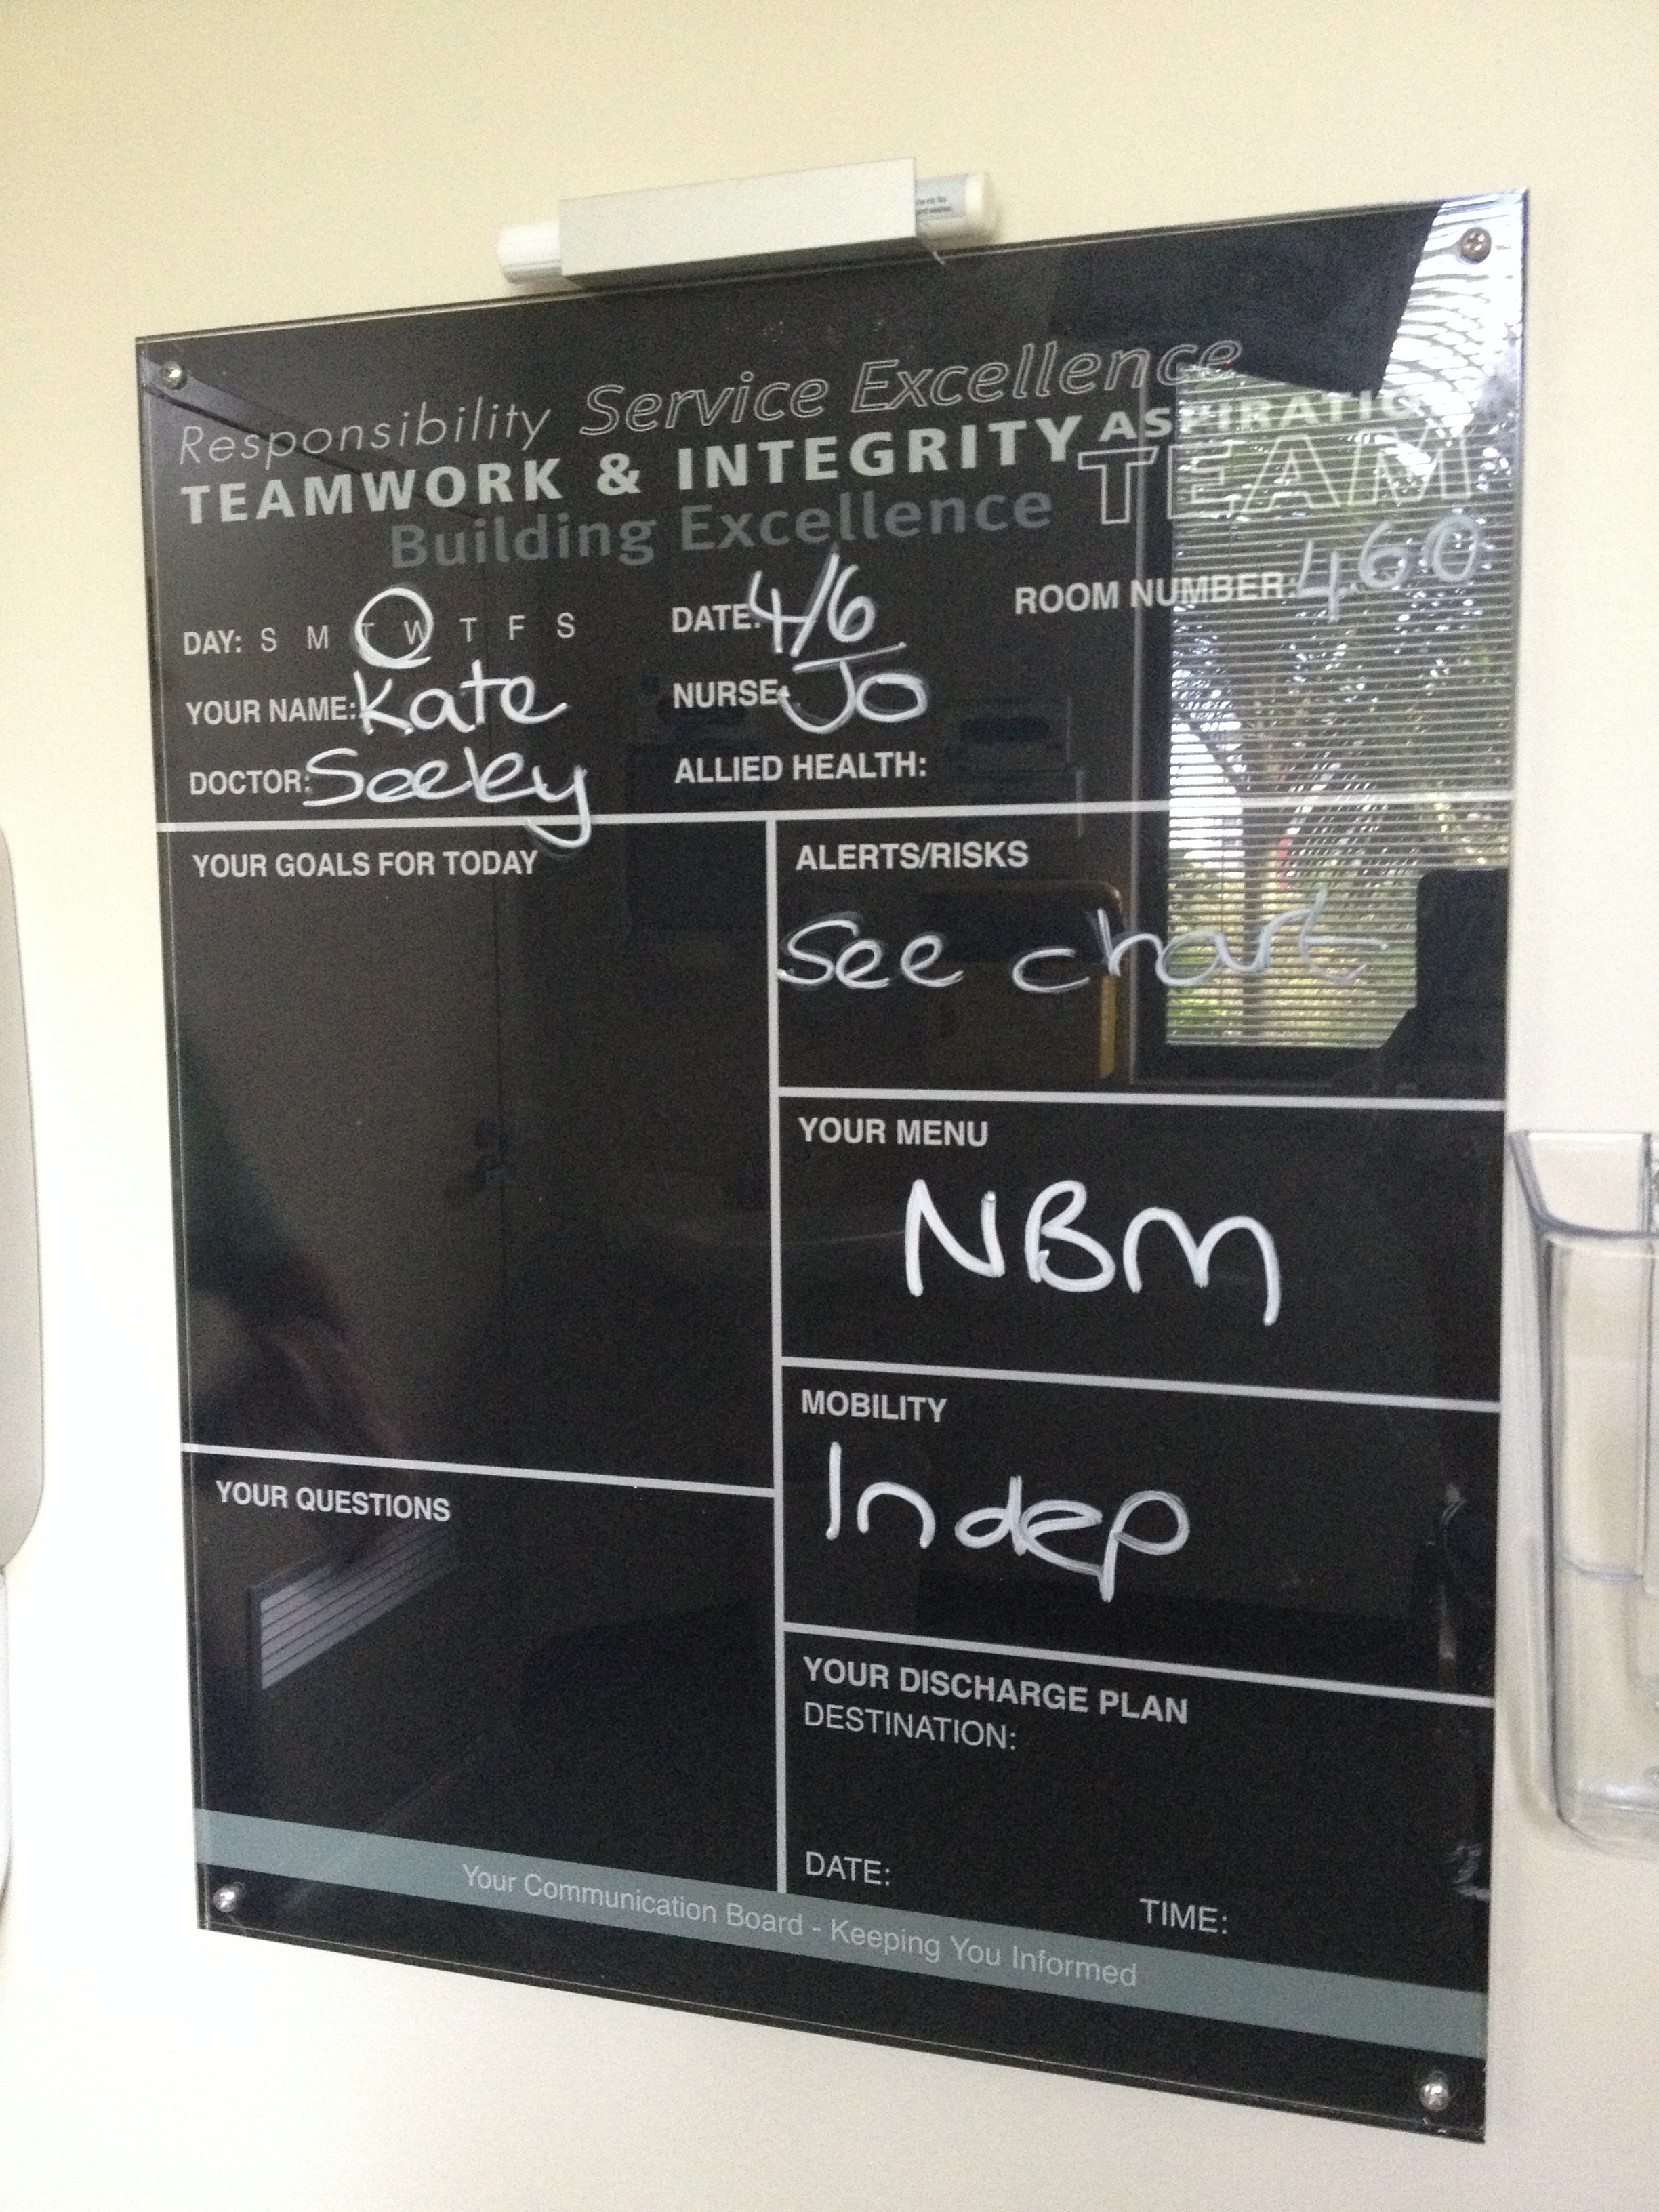 Responsibility Service Excellence
TEAMWORK & INTEGRITY ASPIRATION
Building Excellence TEAM
DAY: S M T W T F S DATE: 4/6 ROOM NUMBER: 460
YOUR NAME: Kate NURSE: Jo
DOCTOR: Seeley ALLIED HEALTH:
YOUR GOALS FOR TODAY
ALERTS/RISKS
See chart
YOUR MENU
NBM
MOBILITY
Indep
YOUR QUESTIONS
YOUR DISCHARGE PLAN
DESTINATION:
DATE: TIME:
Your Communication Board - Keeping You Informed